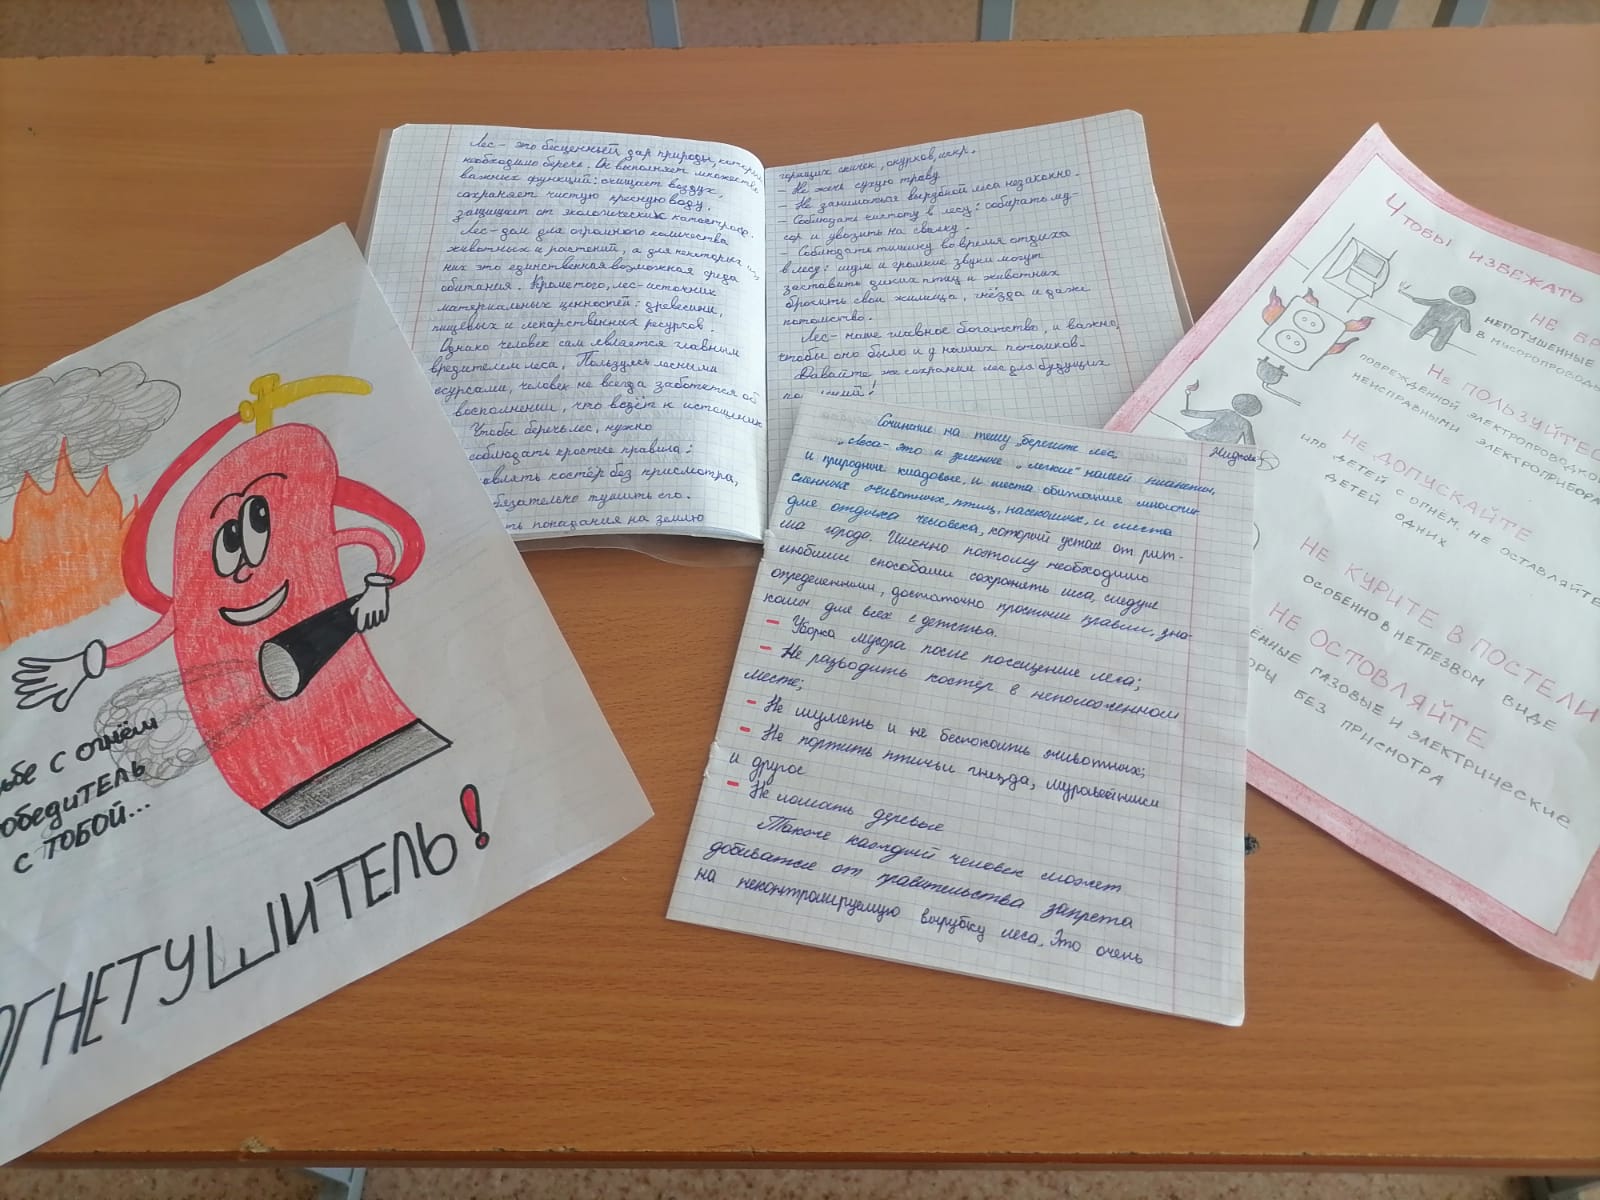 Лес – это бесценный дар природы, который
необходимо беречь. Он выполняет множество
важных функций: очищает воздух,
сохраняет чистую пресную воду,
защищает от экологических катастроф.
Лес – дом для огромного количества
животных и растений, а для некоторых из
них это единственная возможная среда
обитания. Кроме того, лес – источник
материальных ценностей: древесины,
пищевых и лекарственных ресурсов.
Однако человек сам является главным
вредителем леса. Пользуясь лесными
есурсами, человек не всегда заботится об
восполнении, что ведёт к истощению
Чтобы беречь лес, нужно
соблюдать простые правила:
авлять костёр без присмотра,
бязательно тушить его.
ть попадания на землю
горящих спичек, окурков, искр.
– Не жечь сухую траву
– Не заниматься вырубкой леса незаконно.
– Соблюдать чистоту в лесу: собирать му-
сор и увозить на свалку.
– Соблюдать тишину во время отдыха
в лесу: шум и громкие звуки могут
заставить диких птиц и животных
бросить свои жилища, гнёзда и даже
потомство.
Лес – наше главное богатство, и важно,
чтобы оно было и у наших потомков.
Давайте же сохраним лес для будущих
Сочинение на тему „Берегите лес„
„Леса – это и зеленые „легкие" нашей планеты,
и природные кладовые, и места обитание многочис
сленных животных, птиц, насекомых, и места
для отдыха человека, который устал от рит-
ма города. Именно поэтому необходимо
любыми способами сохранять леса, следуя
определенным, достаточно простым правил, зна-
комы для всех с детства.
– Уборка мусора после посещение леса;
– Не разводить костёр в неположенном
месте;
– Не шуметь и не беспокоить животных;
– Не портить птичьи гнезда, муравейники
и другое
– Не ломать деревье
Также каждый человек может
добиватся от правительства запрета
на неконтролируемую вырубку леса. Это очень
ьбе с огнём
обедитель
с тобой...
ОГНЕТУШИТЕЛЬ!
Чтобы избежать
Не бр
непотушенные
в мусоропровод
Не пользуйтес
поврежденной электропроводкой
неисправными электроприбора
Не допускайте
детей с огнём, не оставляйте
детей одних
Не курите в постели
особенно в нетрезвом виде
Не остовляйте
ённые газовые и электрические
оры без присмотра